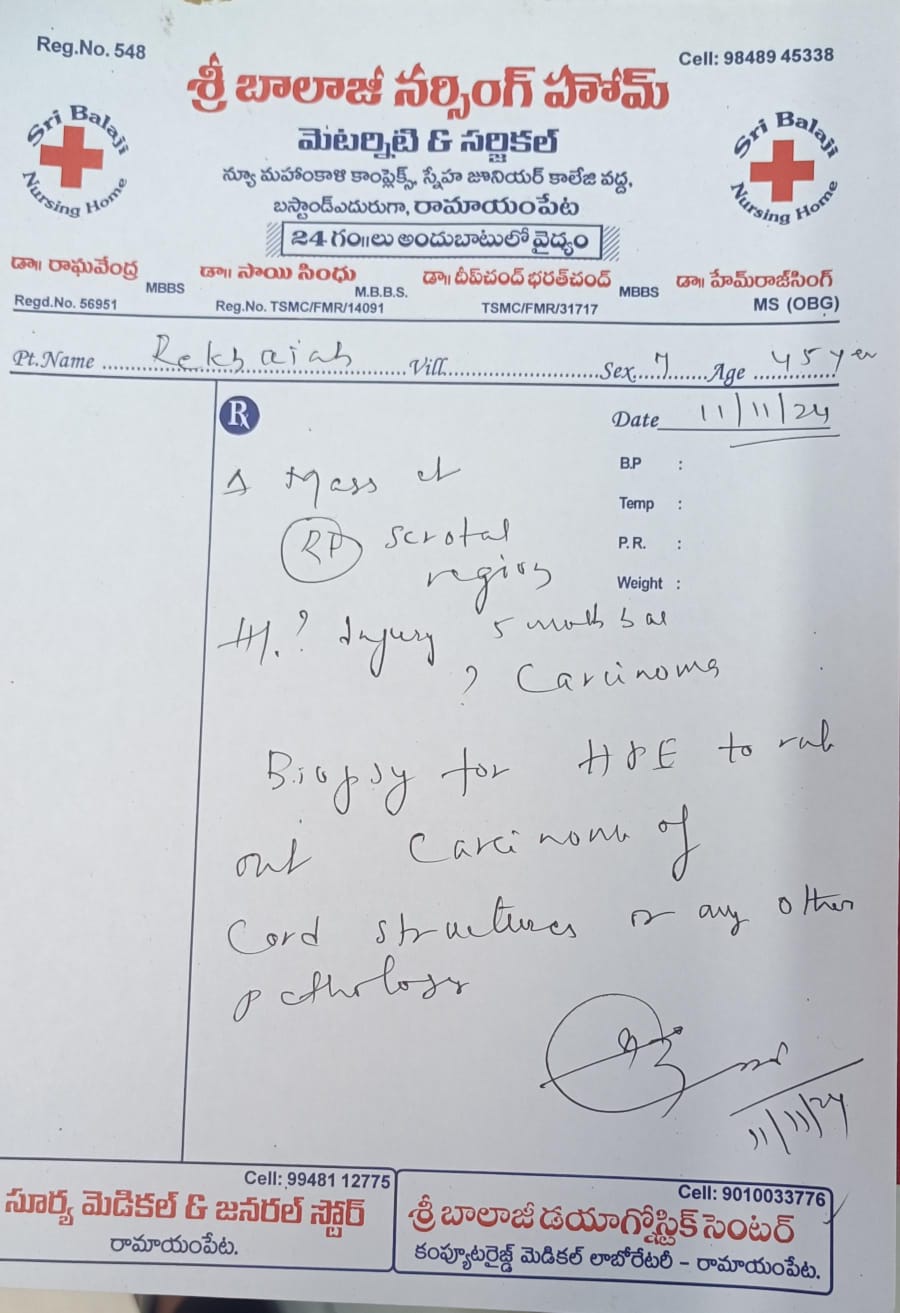 Reg.No. 548
Cell: 98489 45338
శ్రీ బాలాజీ నర్సింగ్ హోమ్
Sri Balaji Nursing Home
Sri Balaji Nursing Home
మెటర్నిటి & సర్జికల్
న్యూ మహంకాళి కాంప్లెక్స్, స్నేహ జూనియర్ కాలేజి వద్ద,
బస్టాండ్ఎదురుగా, రామాయంపేట
24 గం॥లు అందుబాటులో వైద్యం
డా॥ రాఘవేంద్ర MBBS
Regd.No. 56951
డా॥ సాయి సింధు M.B.B.S.
Reg.No. TSMC/FMR/14091
డా॥ దీప్‌చంద్ భరత్‌చంద్ MBBS
TSMC/FMR/31717
డా॥ హేమ్‌రాజ్‌సింగ్
MS (OBG)
Pt.Name Vill. Sex Age 45
Rx
Date 11/11/24
B.P :
Temp :
P.R. :
Weight :
Mass at
scrotal
region
? Injury 5
? Carcinoma
Biopsy for HPE to
out Carcinoma of
Cord structures or any other
pathology
11/11/24
Cell: 99481 12775
సూర్య మెడికల్ & జనరల్ స్టోర్
రామాయంపేట.
Cell: 9010033776
శ్రీ బాలాజీ డయాగ్నోస్టిక్ సెంటర్
కంప్యూటరైజ్డ్ మెడికల్ లాబోరేటరీ – రామాయంపేట.